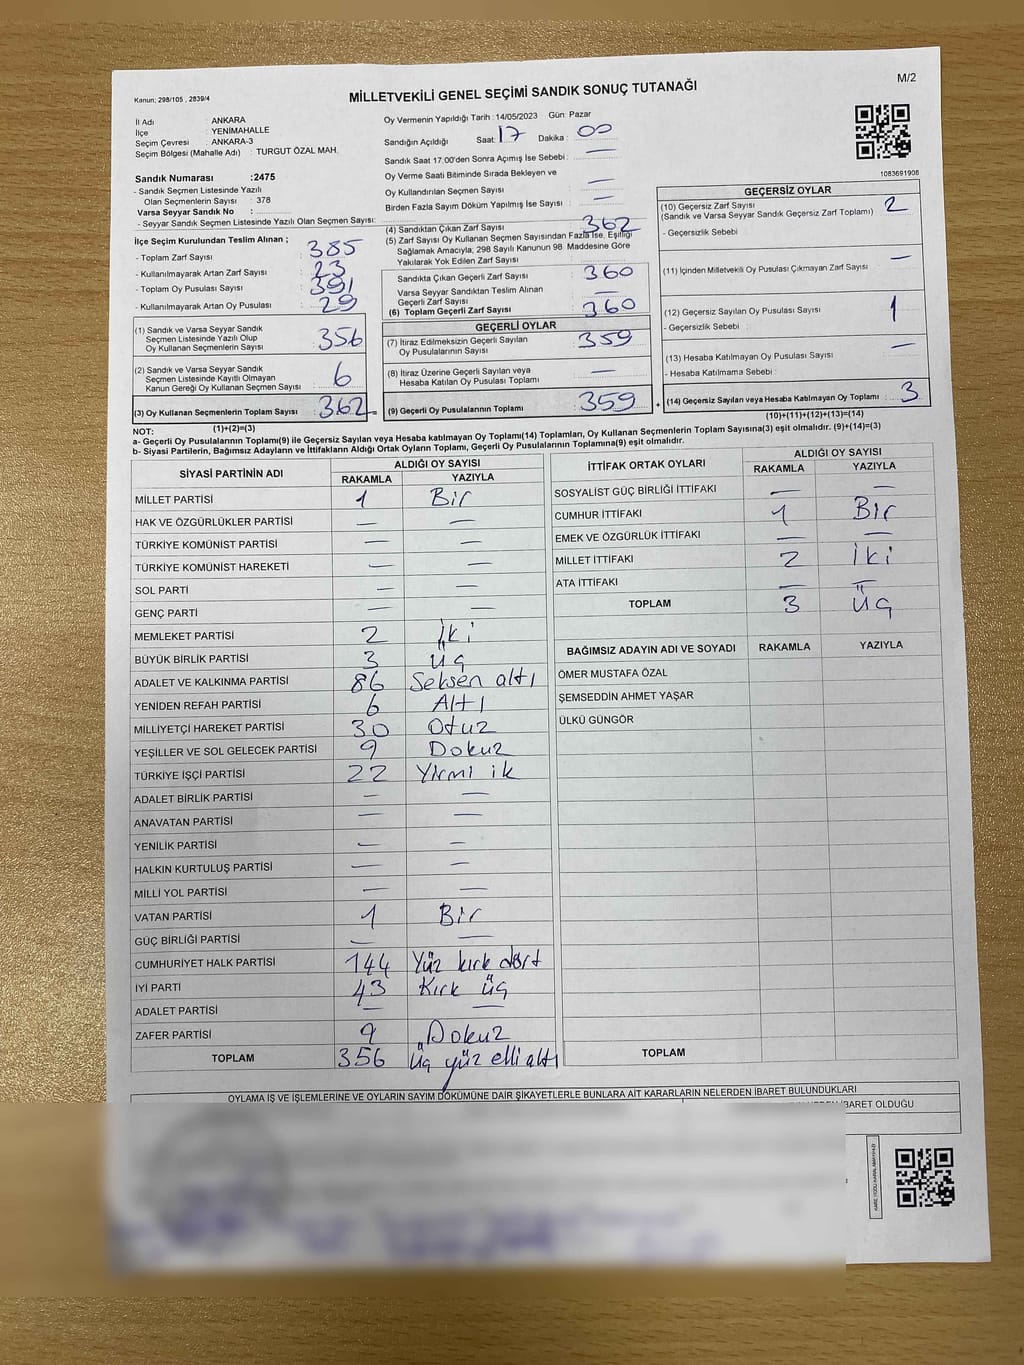 M/2
Kanun; 298/105 , 2839/4
MİLLETVEKİLİ GENEL SEÇİMİ SANDIK SONUÇ TUTANAĞI
İl Adı : ANKARA
İlçe : YENİMAHALLE
Seçim Çevresi : ANKARA-3
Seçim Bölgesi (Mahalle Adı) : TURGUT ÖZAL MAH.
Sandık Numarası :2475
- Sandık Seçmen Listesinde Yazılı
Olan Seçmenlerin Sayısı : 378
Varsa Seyyar Sandık No :
- Seyyar Sandık Seçmen Listesinde Yazılı Olan Seçmen Sayısı:
İlçe Seçim Kurulundan Teslim Alınan ;
- Toplam Zarf Sayısı : 385
- Kullanılmayarak Artan Zarf Sayısı : 23
- Toplam Oy Pusulası Sayısı : 391
- Kullanılmayarak Artan Oy Pusulası : 29
(1) Sandık ve Varsa Seyyar Sandık
Seçmen Listesinde Yazılı Olup
Oy Kullanan Seçmenlerin Sayısı : 356
(2) Sandık ve Varsa Seyyar Sandık
Seçmen Listesinde Kayıtlı Olmayan
Kanun Gereği Oy Kullanan Seçmen Sayısı : 6
(3) Oy Kullanan Seçmenlerin Toplam Sayısı : 362
(1)+(2)=(3)
Oy Vermenin Yapıldığı Tarih :14/05/2023 Gün: Pazar
Sandığın Açıldığı Saat: 17 Dakika : 00
Sandık Saat 17.00'den Sonra Açımış İse Sebebi : —
Oy Verme Saati Bitiminde Sırada Bekleyen ve
Oy Kullandırılan Seçmen Sayısı : —
Birden Fazla Sayım Döküm Yapılmış İse Sayısı : —
(4) Sandıktan Çıkan Zarf Sayısı : 362
(5) Zarf Sayısı Oy Kullanan Seçmen Sayısından Fazla İse, Eşitliği
Sağlamak Amacıyla; 298 Sayılı Kanunun 98. Maddesine Göre
Yakılarak Yok Edilen Zarf Sayısı :
Sandıkta Çıkan Geçerli Zarf Sayısı : 360
Varsa Seyyar Sandıktan Teslim Alınan
Geçerli Zarf Sayısı : —
(6) Toplam Geçerli Zarf Sayısı : 360
GEÇERLİ OYLAR
(7) İtiraz Edilmeksizin Geçerli Sayılan
Oy Pusulalarının Sayısı : 359
(8) İtiraz Üzerine Geçerli Sayılan veya
Hesaba Katılan Oy Pusulası Toplamı : —
(9) Geçerli Oy Pusulalarının Toplamı : 359
+
1083691906
GEÇERSİZ OYLAR
(10) Geçersiz Zarf Sayısı : 2
(Sandık ve Varsa Seyyar Sandık Geçersiz Zarf Toplamı)
- Geçersizlik Sebebi
(11) İçinden Milletvekili Oy Pusulası Çıkmayan Zarf Sayısı : —
(12) Geçersiz Sayılan Oy Pusulası Sayısı : 1
- Geçersizlik Sebebi :
(13) Hesaba Katılmayan Oy Pusulası Sayısı : —
- Hesaba Katılmama Sebebi :
(14) Geçersiz Sayılan veya Hesaba Katılmayan Oy Toplamı : 3
(10)+(11)+(12)+(13)=(14)
NOT:
a- Geçerli Oy Pusulalarının Toplamı(9) ile Geçersiz Sayılan veya Hesaba katılmayan Oy Toplamı(14) Toplamları, Oy Kullanan Seçmenlerin Toplam Sayısına(3) eşit olmalıdır. (9)+(14)=(3)
b- Siyasi Partilerin, Bağımsız Adayların ve İttifakların Aldığı Ortak Oyların Toplamı, Geçerli Oy Pusulalarının Toplamına(9) eşit olmalıdır.
SİYASİ PARTİNİN ADI
ALDIĞI OY SAYISI
RAKAMLA YAZIYLA
MİLLET PARTİSİ 1 Bir
HAK VE ÖZGÜRLÜKLER PARTİSİ — —
TÜRKİYE KOMÜNİST PARTİSİ — —
TÜRKİYE KOMÜNİST HAREKETİ — —
SOL PARTİ — —
GENÇ PARTİ — —
MEMLEKET PARTİSİ 2 İki
BÜYÜK BİRLİK PARTİSİ 3 Üç
ADALET VE KALKINMA PARTİSİ 86 Seksen altı
YENİDEN REFAH PARTİSİ 6 Altı
MİLLİYETÇİ HAREKET PARTİSİ 30 Otuz
YEŞİLLER VE SOL GELECEK PARTİSİ 9 Dokuz
TÜRKİYE İŞÇİ PARTİSİ 22 Yirmi ik
ADALET BİRLİK PARTİSİ — —
ANAVATAN PARTİSİ — —
YENİLİK PARTİSİ — —
HALKIN KURTULUŞ PARTİSİ — —
MİLLİ YOL PARTİSİ — —
VATAN PARTİSİ 1 Bir
GÜÇ BİRLİĞİ PARTİSİ — —
CUMHURİYET HALK PARTİSİ 144 Yüz kırk dört
İYİ PARTİ 43 Kırk üç
ADALET PARTİSİ — —
ZAFER PARTİSİ 9 Dokuz
TOPLAM 356 Üç yüz elli altı
İTTİFAK ORTAK OYLARI
ALDIĞI OY SAYISI
RAKAMLA YAZIYLA
SOSYALİST GÜÇ BİRLİĞİ İTTİFAKI — —
CUMHUR İTTİFAKI 1 Bir
EMEK VE ÖZGÜRLÜK İTTİFAKI — —
MİLLET İTTİFAKI 2 İki
ATA İTTİFAKI — —
TOPLAM 3 Üç
BAĞIMSIZ ADAYIN ADI VE SOYADI RAKAMLA YAZIYLA
ÖMER MUSTAFA ÖZAL
ŞEMSEDDİN AHMET YAŞAR
ÜLKÜ GÜNGÖR
TOPLAM
OYLAMA İŞ VE İŞLEMLERİNE VE OYLARIN SAYIM DÖKÜMÜNE DAİR ŞİKAYETLERLE BUNLARA AİT KARARLARIN NELERDEN İBARET BULUNDUKLARI
İBARET OLDUĞU